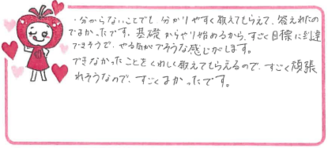 ・分からないことでも、分かりやすく教えてもらえて、答えれたの
でよかったです。基礎からやり始めるから、すごく目標に到達
できそうで、やる気がでそうな感じがします。
できなかったことをくわしく教えてもらえるので、すごく頑張
れそうなので、すごくよかったです。